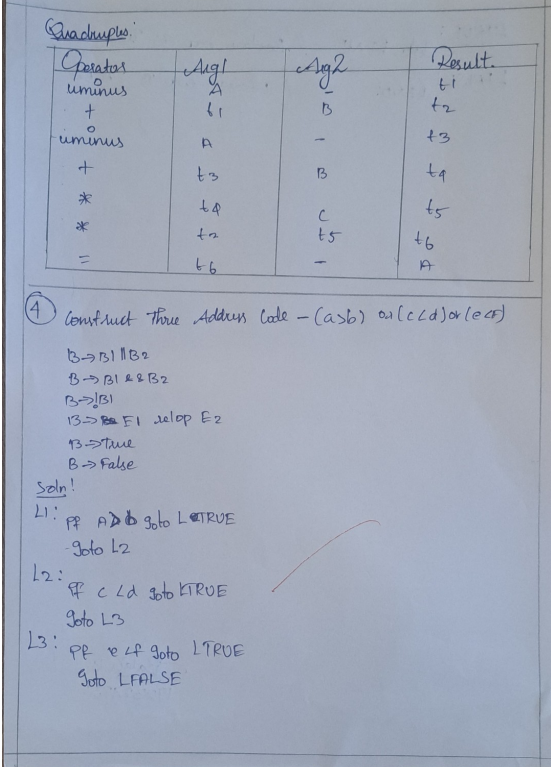 Quadruples:
Operator Arg1 Arg2 Result.
uminus A - t1
+ t1 B t2
uminus A - t3
+ t3 B t4
* t4 C t5
* t2 t5 t6
= t6 - A
④ Construct Three Address Code - (a>b) or (c<d) or (e<f)
B→B1||B2
B→B1&&B2
B→!B1
B→ E1 relop E2
B→True
B→False
Soln!
L1: if A>b goto LTRUE
goto L2
L2:
if c<d goto LTRUE
goto L3
L3: if e<f goto LTRUE
goto LFALSE